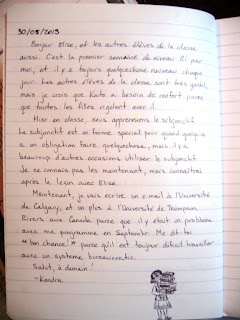 30/05/2013
Bonjour Elise, et les autres élèves de la classe
aussi. C'est la premier semaine de niveau B1 pour
moi, et il y a toujours quelquechose nouveau chaque
jour. Les autres élèves de la classe sont très gentil,
mais je crois que Kato a besoin de renfort parce
que toutes les filles rigolent avec il.
Hier en classe, nous apprenons le subjonctif.
Le subjonctif est un forme special pour quand quelqu'un
a un obligation faire quelquechose, mais il y a
beaucoup d'autres occasions utiliser le subjonctif.
Je ne connais pas les maintenant, mais connaîtrai
après le leçon avec Elise.
Maintenant, je vais écrire un e-mail à l'Université
de Calgary, et en plus à l'Université de Thompson
Rivers aux Canada parce que il y était un problème
avec ma programme en Septembre. Me dit toi
"bon chance!" parce qu'il est toujour difficil travailler
avec un systeme bureaucratic.
Salut, à demain!
-Kendra